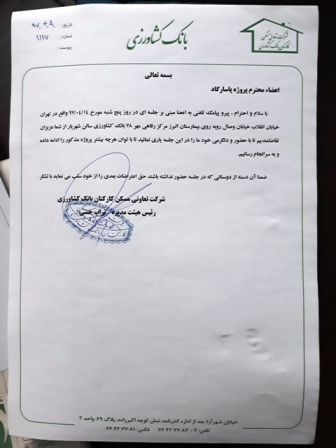 بانک کشاورزی
شرکت تعاونی مسکن
کارکنان بانک کشاورزی
تاریخ:
شماره: ۱۱۱۷
پیوست:
بسمه تعالی
اعضاء محترم پروژه پاسارگاد
با سلام و احترام ، پیرو پیامک تلفنی به اعضا مبنی بر جلسه ای در روز پنج شنبه مورخ ۹۷/۰۴/۱۴ واقع در تهران
خیابان انقلاب خیابان وصال روبه روی بیمارستان البرز مرکز رفاهی مهر ۷۸ بانک کشاورزی سالن شهریار از شما عزیزان
تقاضامندیم تا با حضور و دلگرمی خود ما را در این جلسه یاری نمائید تا با توان هرچه بیشتر پروژه مذکور را ادامه داده
و به سرانجام رسانیم.
ضمنا آن دسته از دوستانی که در جلسه حضور نداشته باشند، حق اعتراضات بعدی را از خود سلب می نماید با تشکر
شرکت تعاونی مسکن کارکنان بانک کشاورزی
رئیس هیئت مدیره
خیابان شهرآرا، بعد از اداره گذرنامه، نبش کوچه اکبرزاده، پلاک ۲۹، واحد ۲
تلفن: ۴ - ۸۲ ۷۷ ۲۲ ۶۶ فکس: ۸۱ ۷۷ ۲۲ ۶۶